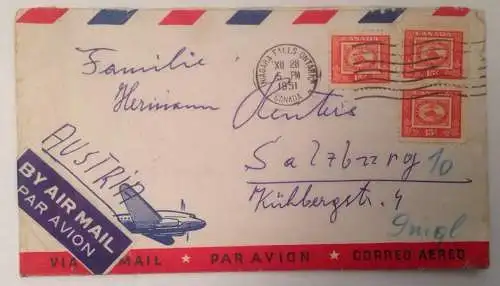 CANADA
CANADA
15¢
15¢
CANADA
15¢
NIAGARA FALLS-ONTARIO
XII 28
5 - PM
1951
CANADA
Familie
Hermann
AUSTRIA
Salzburg 10
Kühbergstr. 4
Gnigl
BY AIR MAIL
PAR AVION
VIA MAIL ★ PAR AVION ★ CORREO AEREO